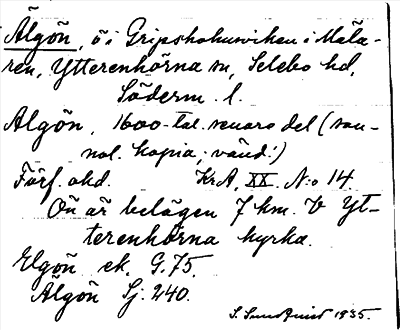 Älgön, ö i Gripsholmsviken i Mäla-
ren, Ytterenhörna sn, Selebo hd,
Söderm. l.
Älgön, 1600-tal. senare del (san-
nol. kopia; vänd!)
Förf. okd. KrA, XX. N:o 14.
Ön är belägen 7 km. V Yt-
terenhörna kyrka.
Elgön ek. G. 75.
Älgön Sj. 240.
S. Sundquist 1935.